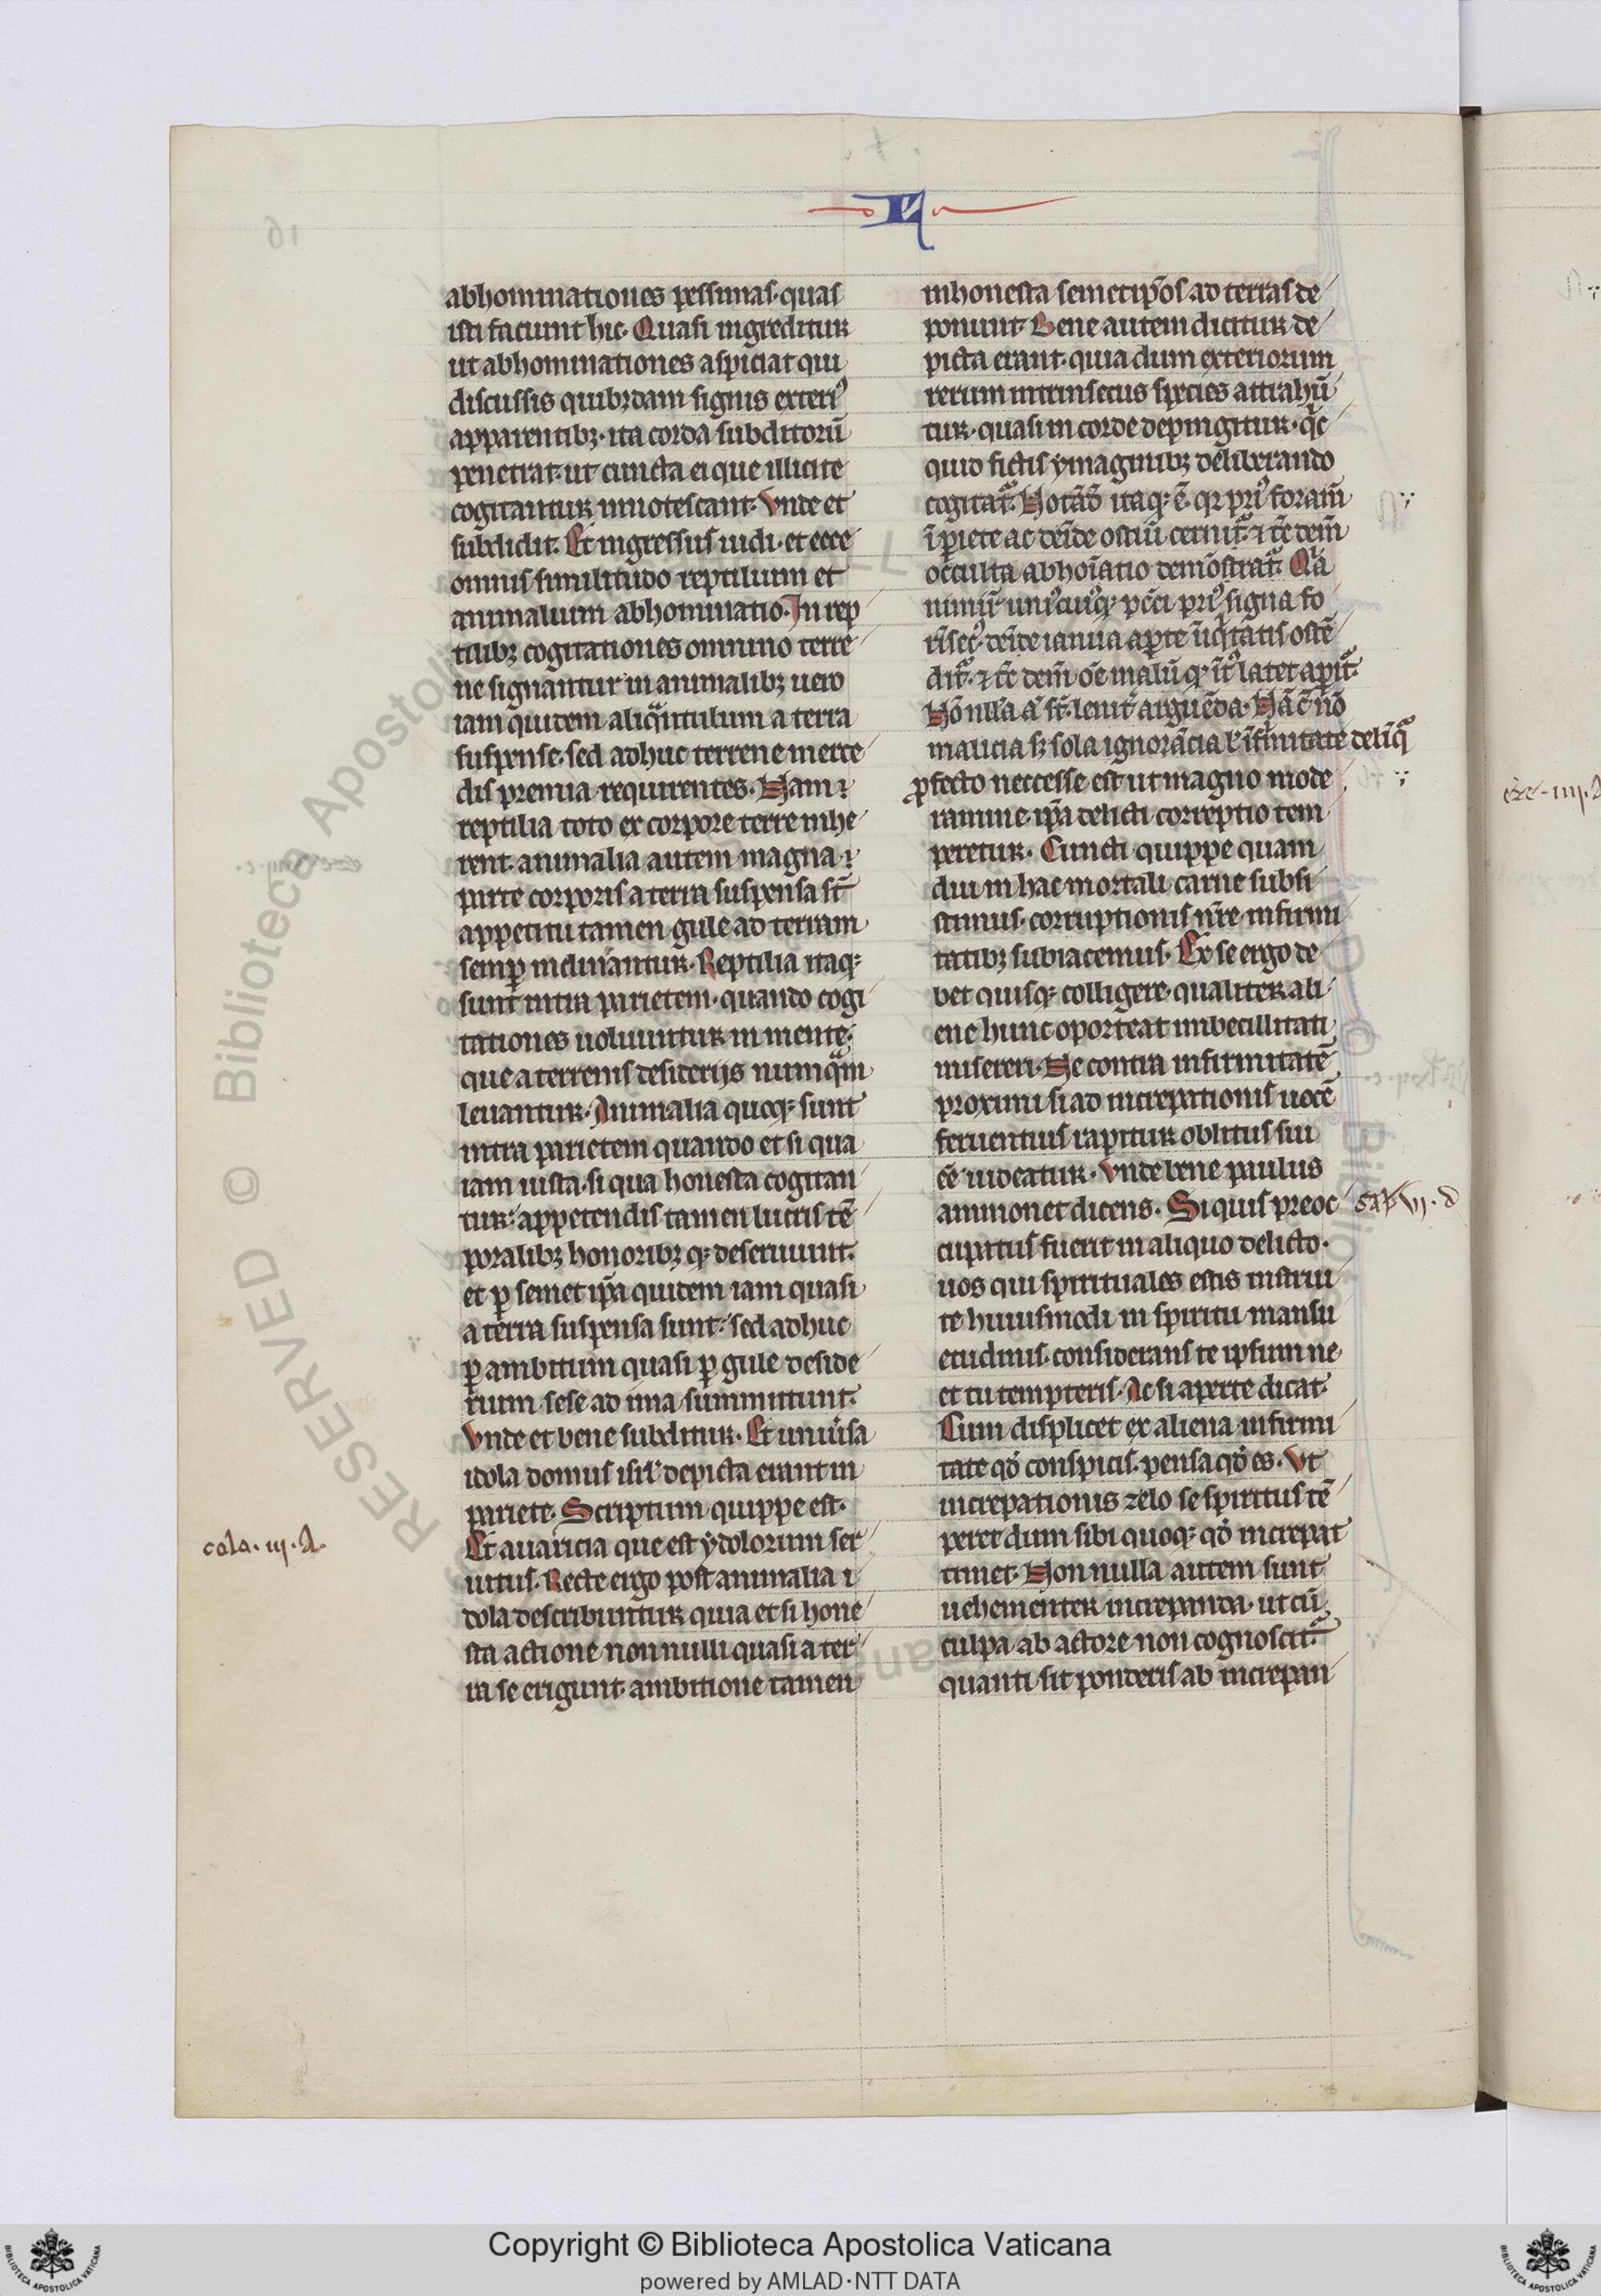 abhominationes pessimas·quas
isti faciunt hic· Quasi ingreditur
ut abhominationes aspiciat qui
discussis quibꝫdam signis exteriꝰ
apparentibꝫ· ita corda subditorū
penetrat· ut cuncta ei que illicite
cogitantur innotescant· Vnde et
subdidit· Et ingressus uidi· et ecce
omnis similitudo reptilium et
animalium abhominatio· In rep
tilibꝫ cogitationes omnino terre
ne signantur in animalibꝫ uero
iam quidem aliqͣntulum a terra
suspense· sed adhuc terrene merce
dis premia requirentes· Nam ⁊
reptilia toto ex corpore terre inhe
rent· animalia autem magna ⁊
parte corporis a terra suspensa st̄
appetitu tamen gule ad terram
semꝑ inclinantur· Reptilia itaqꝫ
sunt intra parietem· quando cogi
tationes uoluuntur in mente·
que a terrenis desiderijs numqͣm
leuantur· Animalia quoqꝫ sunt
intra parietem quando et si qua
iam iusta· si qua honesta cogitan
tur· appetendis tamen lucris tē
poralibꝫ honoribꝫqꝫ deseruiunt·
et ꝑ semet ip̄a quidem iam quasi
a terra suspensa sunt· sed adhuc
ꝑ ambitum quasi ꝑ gule deside
rium sese ad ima summittunt·
Vnde et bene subditur· Et uniuͥsa
idola domus isrl̓ depicta erant in
pariete· Scriptum quippe est·
Et auaricia que est ydolorum ser
uitus· Recte ergo post animalia i
dola describuntur quia et si hone
sta actione nonnulli quasi a ter
ra se erigunt· ambitione tamen
inhonesta semetip̄os ad terras de
ponunt· Bene autem dicitur de
picta erant· quia dum exteriorum
rerum intrinsecus species attrahū
tur· quasi in corde depingitur· qͨc
quid fictis ymaginibꝫ deliberando
cogitatͣ· Notād̄ itaqꝫ ē· qꝛ priꝰ foram̄
ī pͥete ac deīde ostiū cernitͣ· ⁊ tc̄ dem̄
occulta abhoīatio demōstratͣ· Qͥa
nimiꝝ uniꝰcuiꝰqꝫ pcc̄i priꝰ signa fo
rīsecꝰ· deīde ianua aꝑte īiqͥtatis ostē
ditͣ· ⁊ tc̄ dem̄ oē malū qꝫ ītͣ latet aꝑitͣ·
Nōnulla aͧ st̄· lenitͥ arguēda· Nā c̄ nō
malicia sꝫ sola ignorācia l̓ īfirmitate delīqͥtͣ
ꝓfecto neccesse est ut magno mode
ramine· ip̄a delicti correptio tem
peretur· Cuncti quippe quam
diu in hac mortali carne subsi
stimus· corruptionis nr̄e infirmi
tatibꝫ subiacemus· Ex se ergo de
bet quisqꝫ colligere· qualiter ali
ene hunc oporteat imbecillitati
misereri· Ne contra infirmitatē
proximi si ad increpationis uocē
feruentius rapitur oblitus sui
eē uideatur· Vnde bene paulus
ammonet dicens· Si quis preoc
cupatus fuerit in aliquo delicto·
uos qui spirituales estis instrui
te huiusmodi in spiritu mansu
etudinis· considerans te ipsum ne
et tu tempteris· Ac si aperte dicat·
Cum displicet ex aliena infirmi
tate qd̓ conspicis· pensa qd̓ es· Vt
increpationis zelo se spiritus tē
peret dum sibi quoqꝫ qd̓ increpat
timet· Non nulla autem sunt
uehementer increpanda· ut cū
culpa ab actore non cognoscitͣ
quanti sit ponderis ab increpan
RESERVED © Biblioteca Apostolica
Copyright © Biblioteca Apostolica Vaticana
powered by AMLAD·NTT DATA